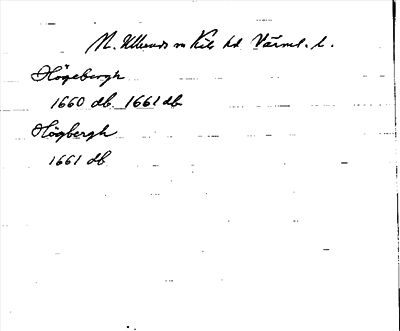 N. Ullerud sn Kils hd Värml. l.
Högebergh
1660 db. 1661 db
Högbergh
1661 db